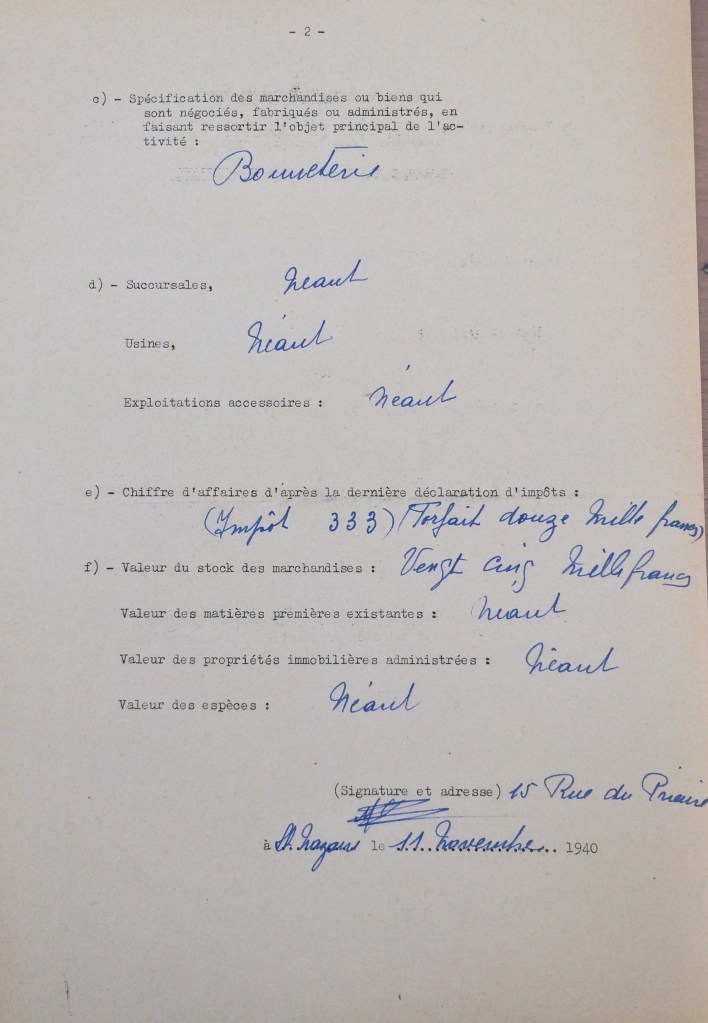 - 2 -
c) - Spécification des marchandises ou biens qui
sont négociés, fabriqués ou administrés, en
faisant ressortir l'objet principal de l'ac-
tivité :
Bonneterie
d) - Succursales, Néant
Usines, Néant
Exploitations accessoires : Néant
e) - Chiffre d'affaires d'après la dernière déclaration d'impôts :
(Impôt 333) (Forfait douze mille francs)
f) - Valeur du stock des marchandises : Vengt cinq Mille francs
Valeur des matières premières existantes : Néant
Valeur des propriétés immobilières administrées : Néant
Valeur des espèces : Néant
(Signature et adresse) 15 Rue du Prieuré
à St. Nazaire le 11 Novembre 1940